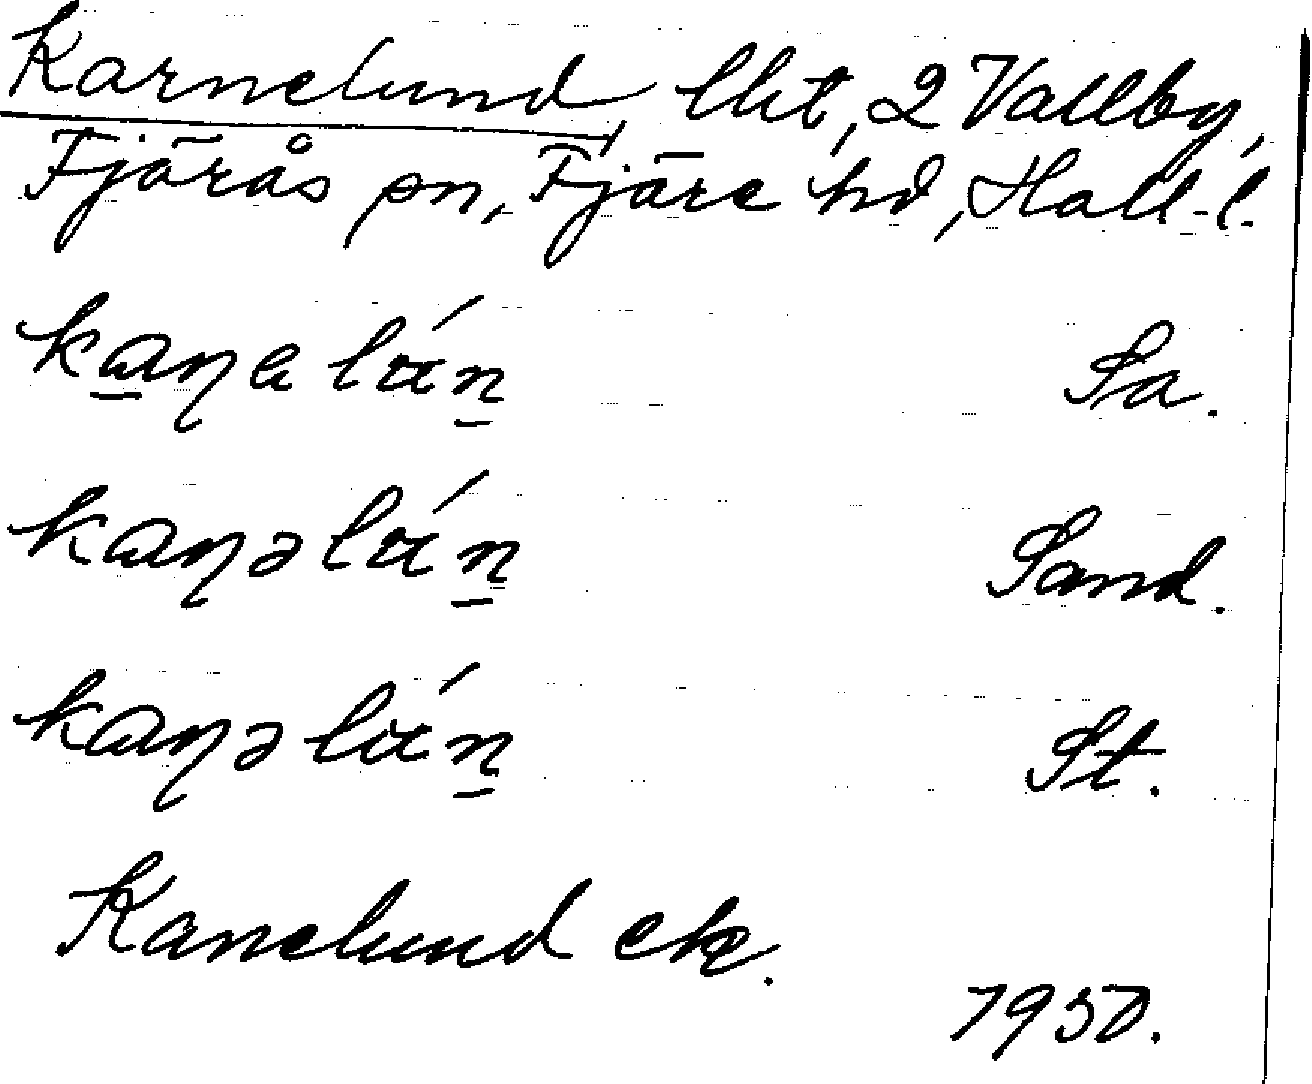 Karnelund, lht, 2 Vallby,
Fjärås sn, Fjäre hd, Hall. l.
kaɳelún̠ Sa.
kaɳəlún̠ Sand.
kaɳəlún̠ St.
Kanelund ek.
1950.